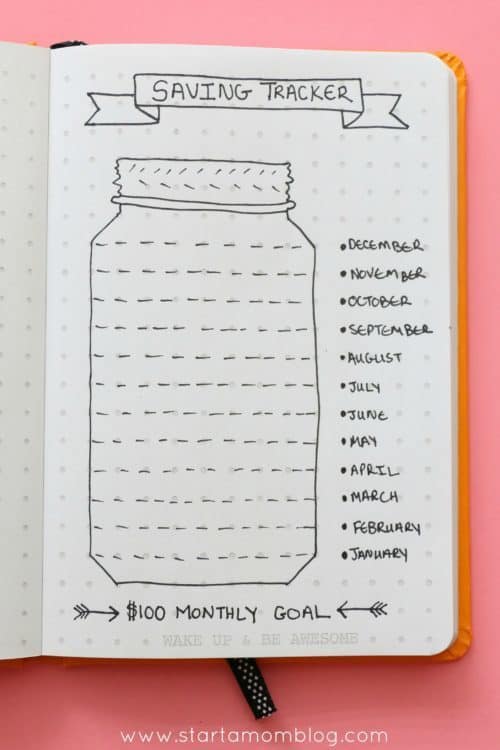 SAVING TRACKER
•DECEMBER
•NOVEMBER
•OCTOBER
•SEPTEMBER
•AUGUST
•JULY
•JUNE
•MAY
•APRIL
•MARCH
•FEBRUARY
•JANUARY
$100 MONTHLY GOAL
WAKE UP & BE AWESOME
www.startamomblog.com